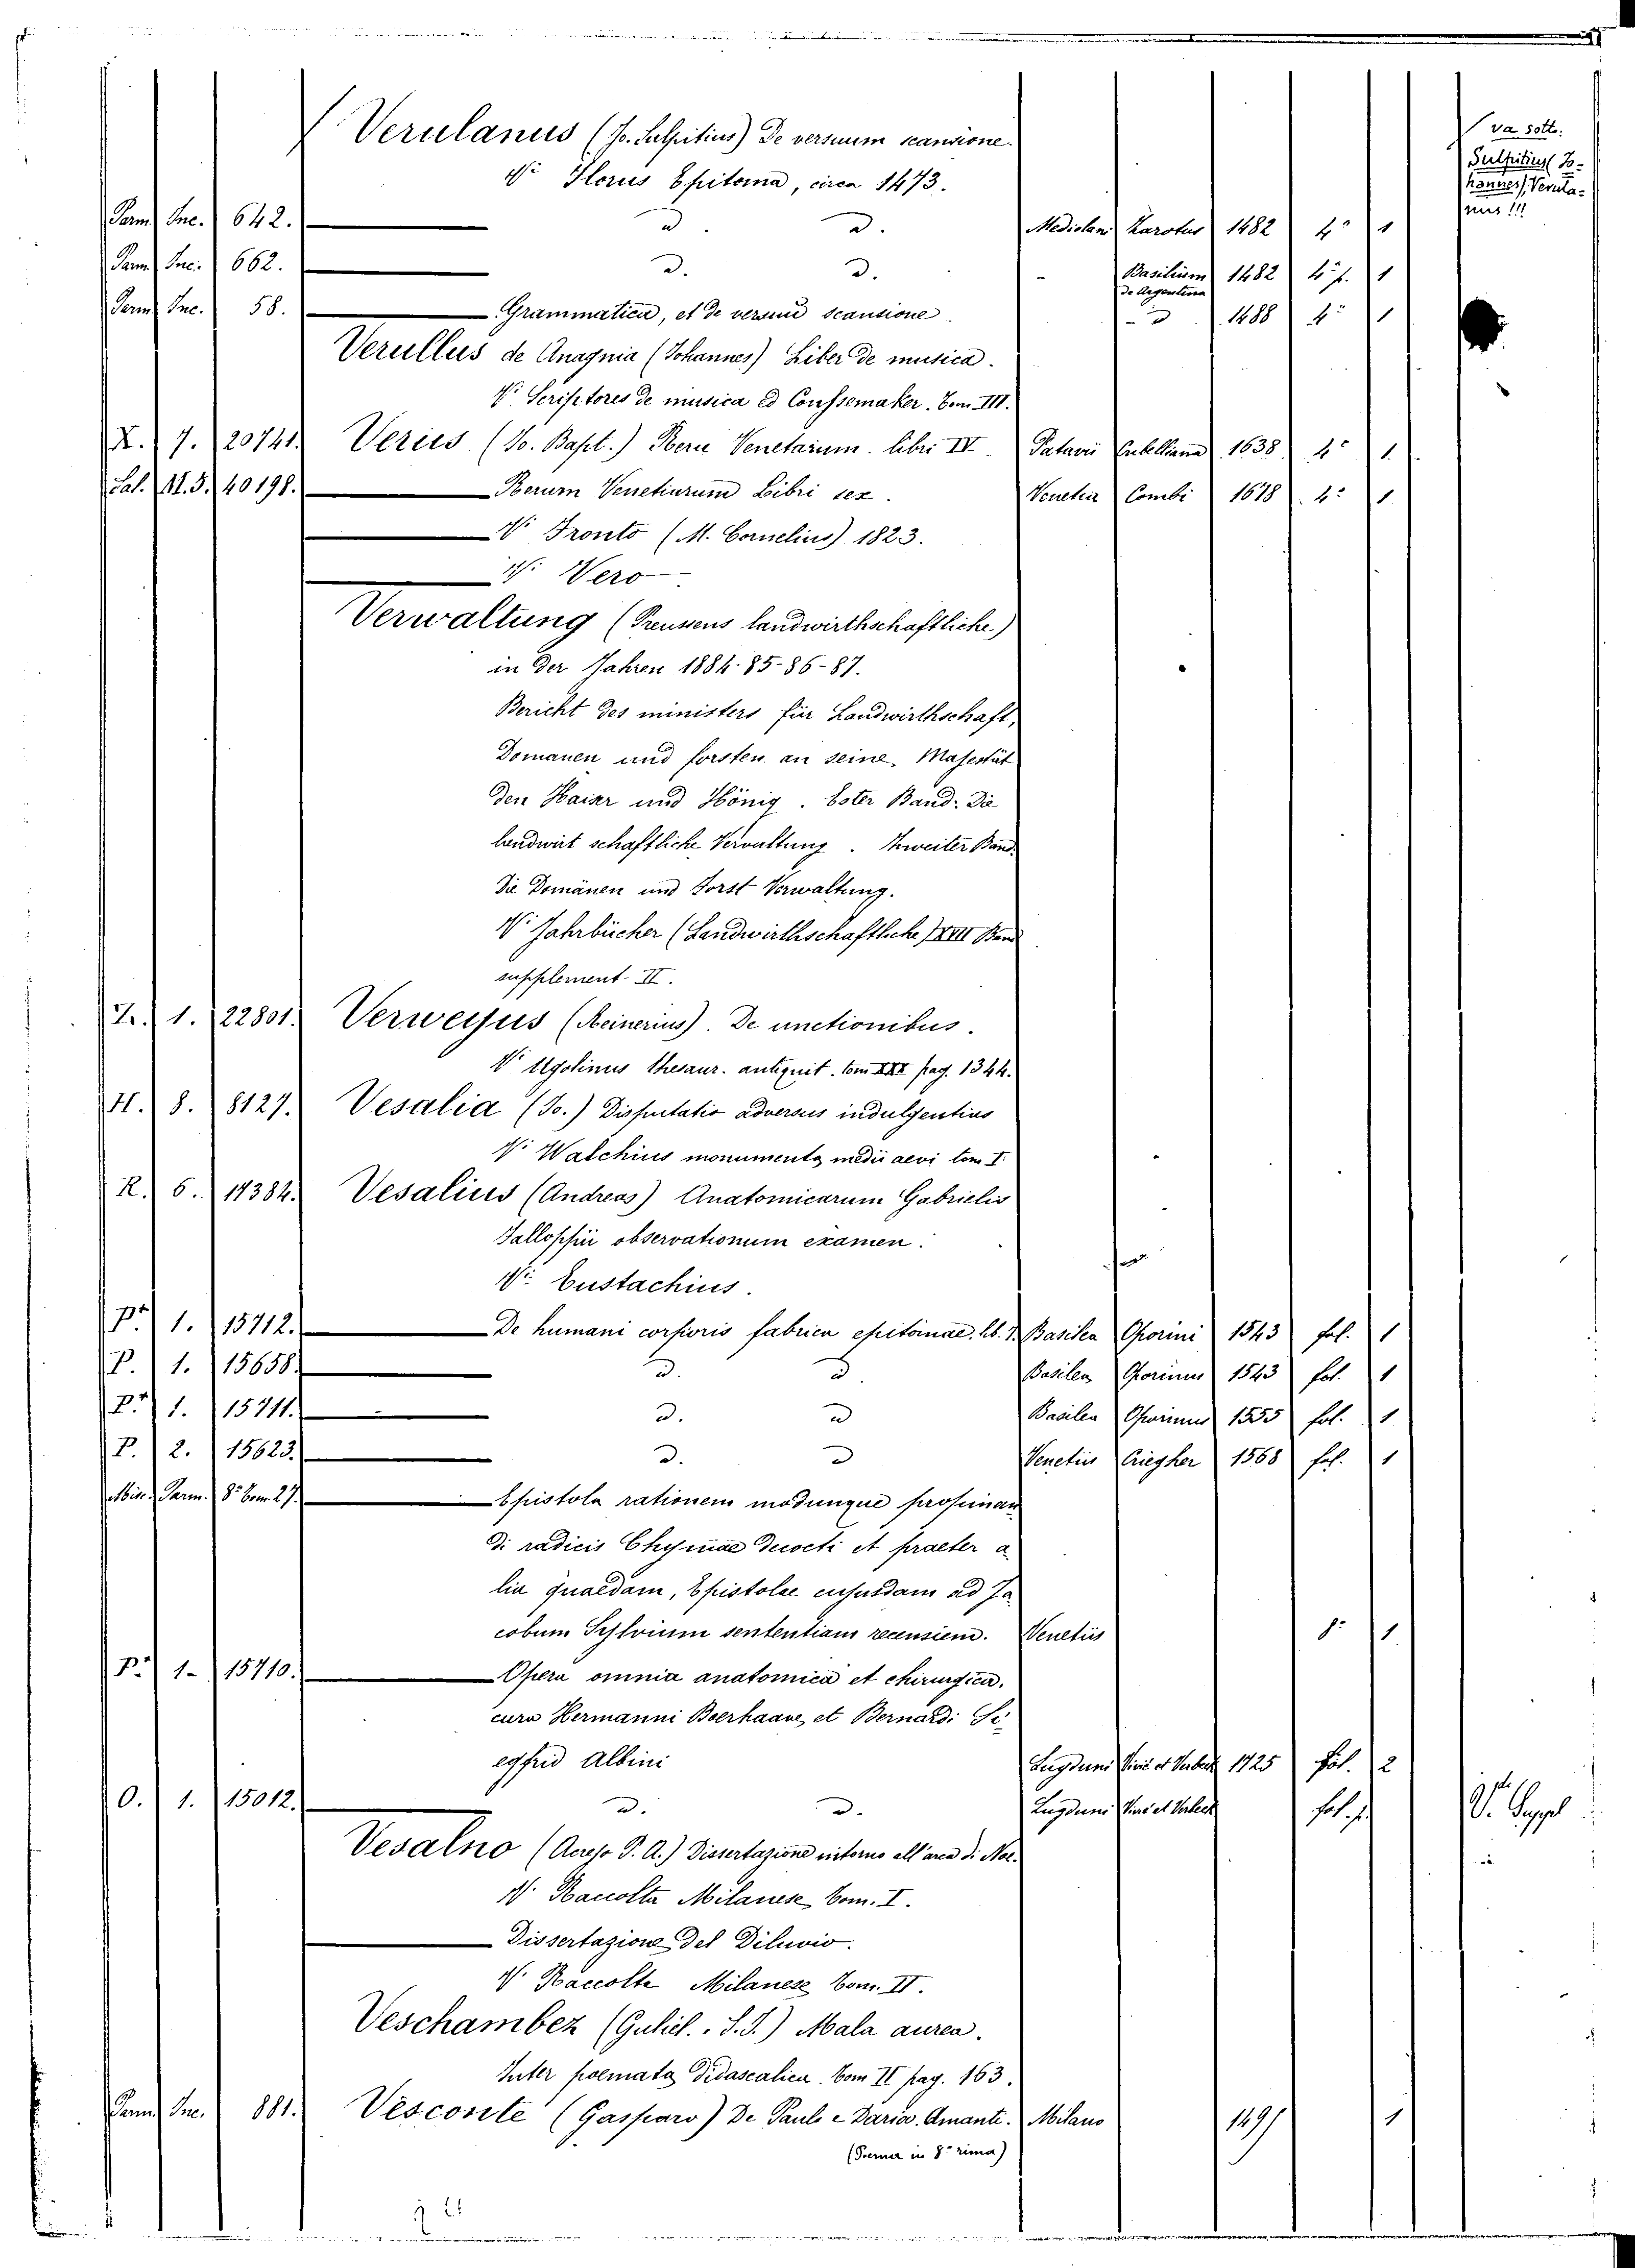 Verulanus (Jo. Sulpitius) De versuum scansione.
va sotto:
Sulpitius (Jo-
hannes), Verula-
nus !!!
V. Florus Epitoma, circa 1473.
Parm. Inc. 642. d. d. Mediolani Zarotus 1482 4° 1
Parm. Inc. 662. d. d. - Basilium de Argentina 1482 4° p. 1
Parm. Inc. 58. Grammatica, et de versuu scansione. - d 1488 4° 1
Verullus de Anagnia (Johannes) Liber de musica.
V. Scriptores de musica ed Coussemaker. Tom III.
X. 7. 20741. Verus (Jo. Bapt.) Reru Venetarum. libri IV. Patavii Cribelliana 1638 4° 1.
Sal. M. 5. 40198. Rerum Venetiarum Libri sex. Venetia Combi 1678. 4° 1
V. Fronto (M. Cornelius) 1823.
V. Vero
Verwaltung (Preussens landwirthschaftliche)
in der Jahren 1884-85-86-87.
Bericht des ministers für Landwirthschaft,
Domanen und forsten an seine Majestät
den Kaiser und König. Erster Band: Die
landwirt schaftliche Verwaltung. Zweiter Band:
Die Domänen und Forst Verwaltung.
V. Jahrbücher (Landwirthschaftliche) XVII Band
supplement II.
Z. 1. 22801. Verweyus (Reinerius). De unctionibus.
V. Ugolinus thesaur. antiquit. tom XXX pag. 1344.
H. 8. 8127. Vesalia (Jo.) Disputatio adversus indulgentias
V. Walchius monumenta medii aevi tom I
R. 6. 17384. Vesalius (Andreas) Anatomicarum Gabrielis
Falloppii observationum examen.
V. Eustachius.
P.* 1. 15712. De humani corporis fabrica epitomae. lb. 7. Basilea Oporini 1543 fol. 1
P. 1. 15658. d. d Basilea Oporinus 1543 fol. 1
P.* 1. 15711. d. d Basilea Oporinus 1555 fol. 1
P. 2. 15623. d. d Venetiis Criegher 1568 fol. 1
Misc. Parm. 8° Tom. 27. Epistola rationem modumque propinan
di radicis Chynae decocti et praeter a
lia quaedam, Epistolae cujusdam ad Ja
cobum Sylvium sententiam recensiem. Venetiis 8° 1.
P.* 1- 15710. Opera omnia anatomica et chirurgica.
cura Hermanni Boerhaave, et Bernardi Si
egfrid Albini Lugduni Vivie et Verbeek 1725 fol. 2
O. 1. 15012. d. d. Lugduni Vivie et Verbeek fol. p. V. Suppl
Vesalno (Acreso P. A.) Dissertazione intorno all'arca di Noè.
V. Raccolta Milanese Tom. I.
Dissertazione del Diluvio.
V. Raccolta Milanese Tom. II.
Veschambez (Guliel. . S.J.) Mala aurea.
Inter poemata didascalica. Tom II pag. 163.
Parm. Inc. 881. Vesconte (Gasparo) De Paulo e Daria. Amanti. Milano 1491 1
(Poema in 8° rima)